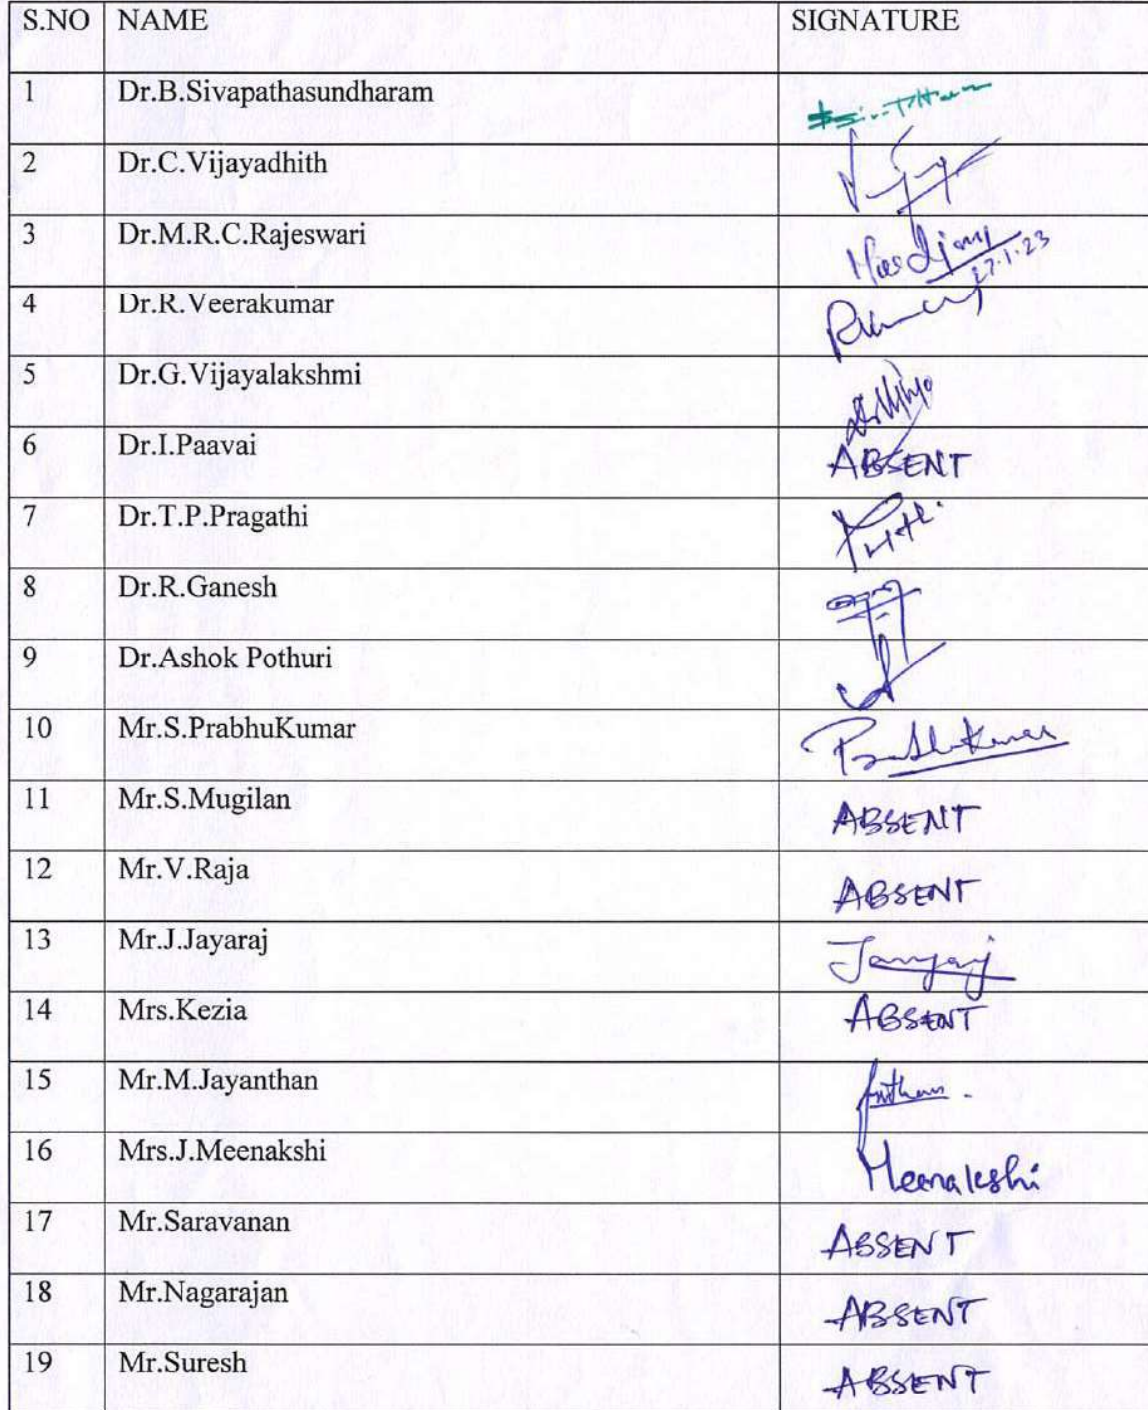 S.NO NAME SIGNATURE
1 Dr.B.Sivapathasundharam
2 Dr.C.Vijayadhith
3 Dr.M.R.C.Rajeswari 27.1.23
4 Dr.R.Veerakumar
5 Dr.G.Vijayalakshmi
6 Dr.I.Paavai ABSENT
7 Dr.T.P.Pragathi
8 Dr.R.Ganesh
9 Dr.Ashok Pothuri
10 Mr.S.PrabhuKumar
11 Mr.S.Mugilan ABSENT
12 Mr.V.Raja ABSENT
13 Mr.J.Jayaraj
14 Mrs.Kezia ABSENT
15 Mr.M.Jayanthan
16 Mrs.J.Meenakshi Meenakshi
17 Mr.Saravanan ABSENT
18 Mr.Nagarajan ABSENT
19 Mr.Suresh ABSENT